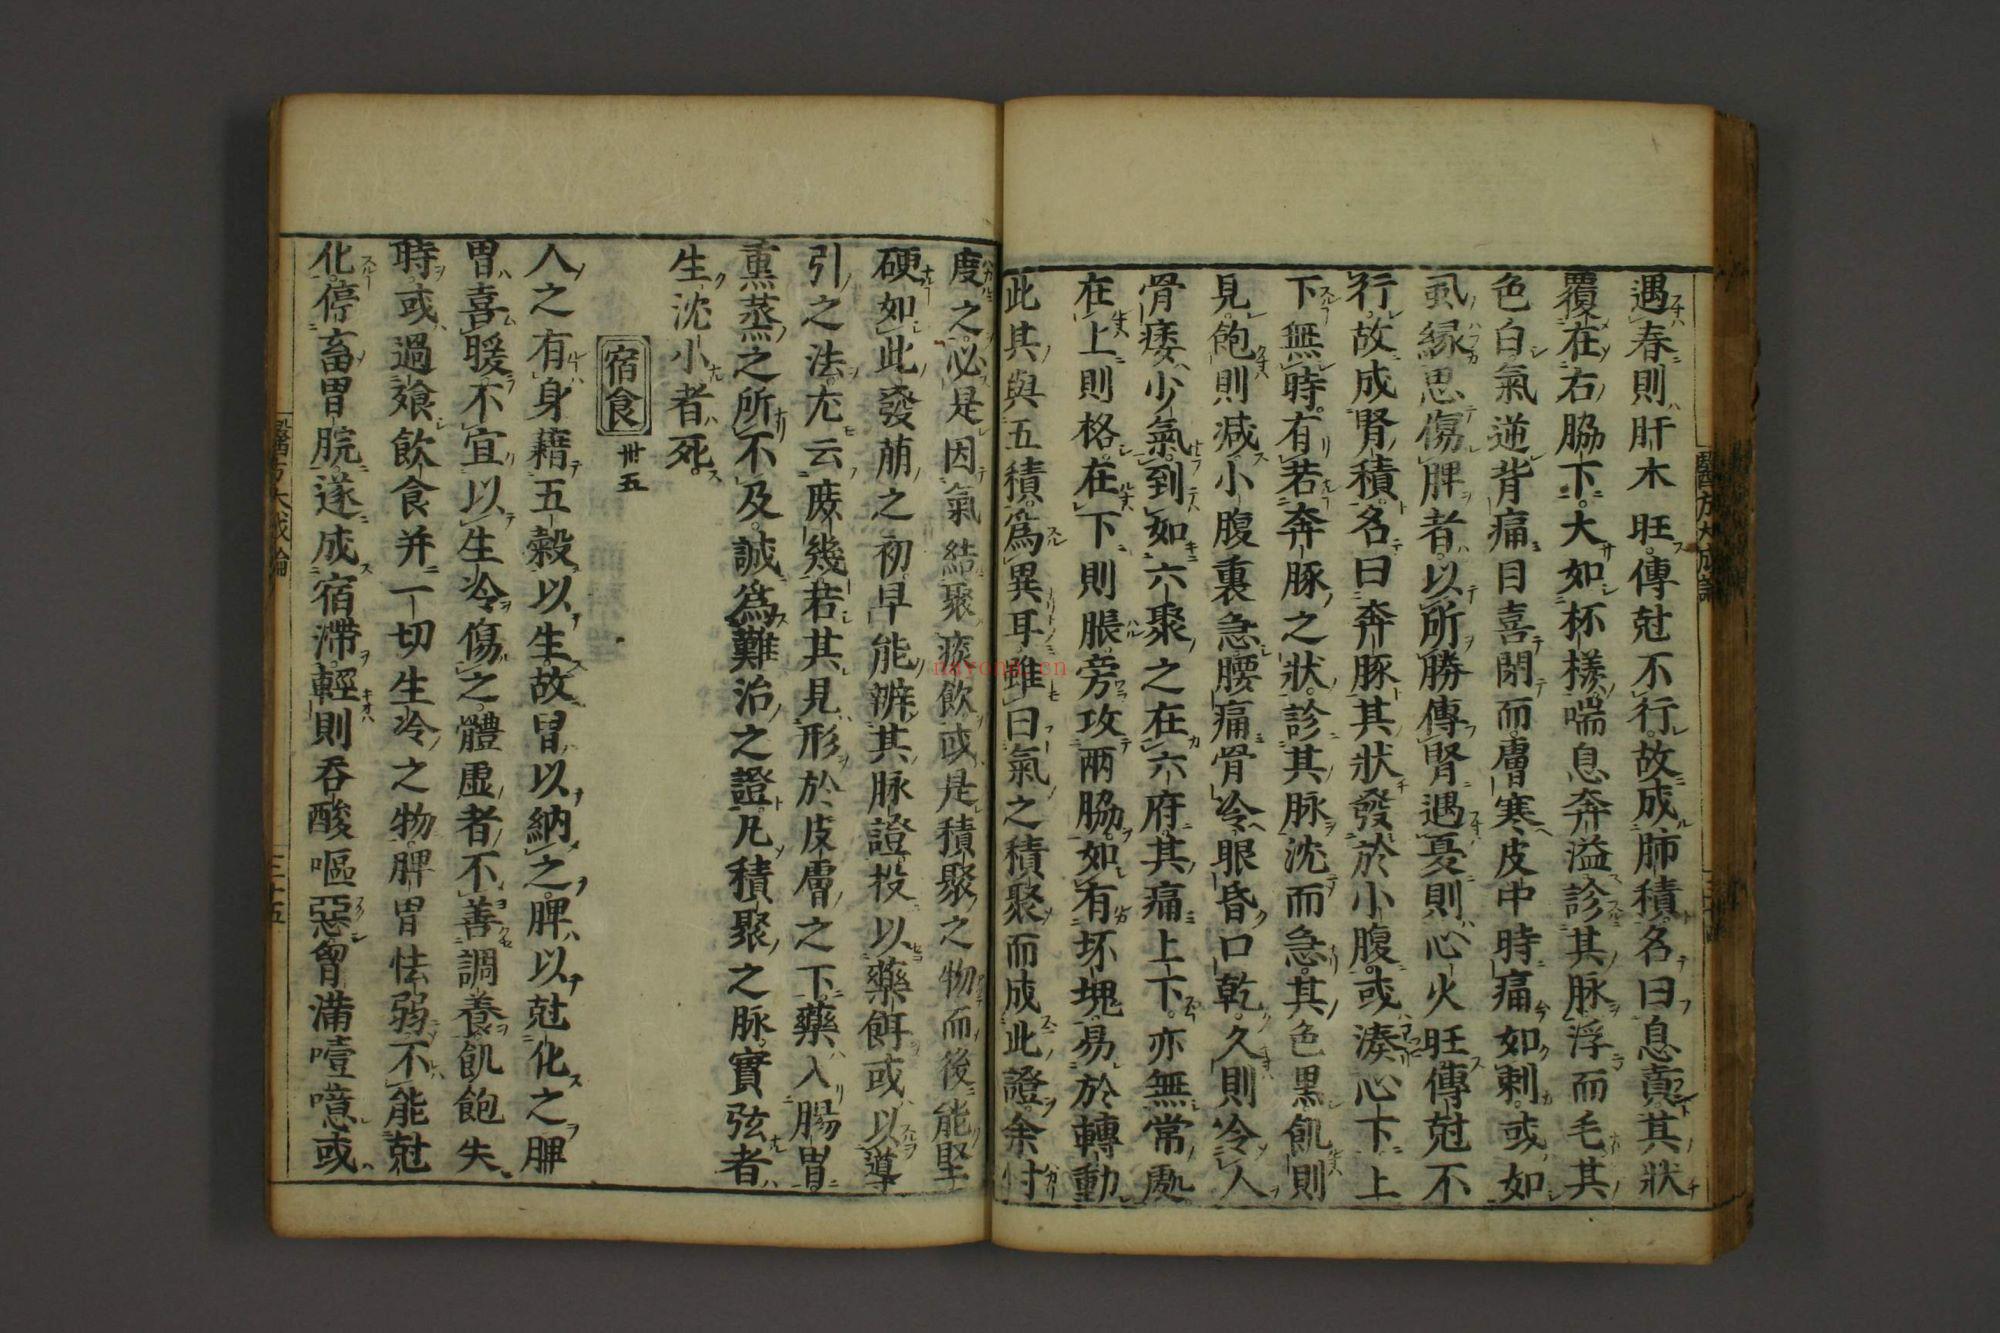 遇春則肝木旺傳尅不行故成肺積名曰息賁其狀
覆在右脇下大如杯樣喘息奔溢診其脉浮而毛其
色白氣逆背痛目喜閉而膚寒皮中時痛如刺或如
虱緣思傷脾者以所勝傳腎遇憂則心火旺傳尅不
行故成腎積名曰奔豚其狀發於小腹或湊心下上
下無時有若奔豚之狀診其脉沈而急其色黒飢則
見飽則减小腹裏急腰痛骨冷眼昏口乾久則冷人
骨痿少氣到如六聚之在六府其痛上下亦無常處
在上則格在下則脹旁攻兩脇如有坏塊易於轉動
此其與五積爲異耳雖曰氣之積聚而成此證余忖
度之必是因氣結聚痰飲或是積聚之物而後能堅
硬如此發萠之初早能辨其脉證投以藥餌或以導
引之法尤云庶幾若其見形於皮膚之下藥入腸胃
熏蒸之所不及誠爲難治之證凡積聚之脉實弦者
生沈小者死
宿食 卅五
人之有身藉五穀以生故胃以納之脾以尅化之脾
胃喜暖不宜以生冷傷之體虚者不善調養飢飽失
時或過飡飲食并一切生冷之物脾胃怯弱不能尅
化停畜胃脘遂成宿滯輕則呑酸嘔惡胷滿噎噫或
醫方大成論
三十五